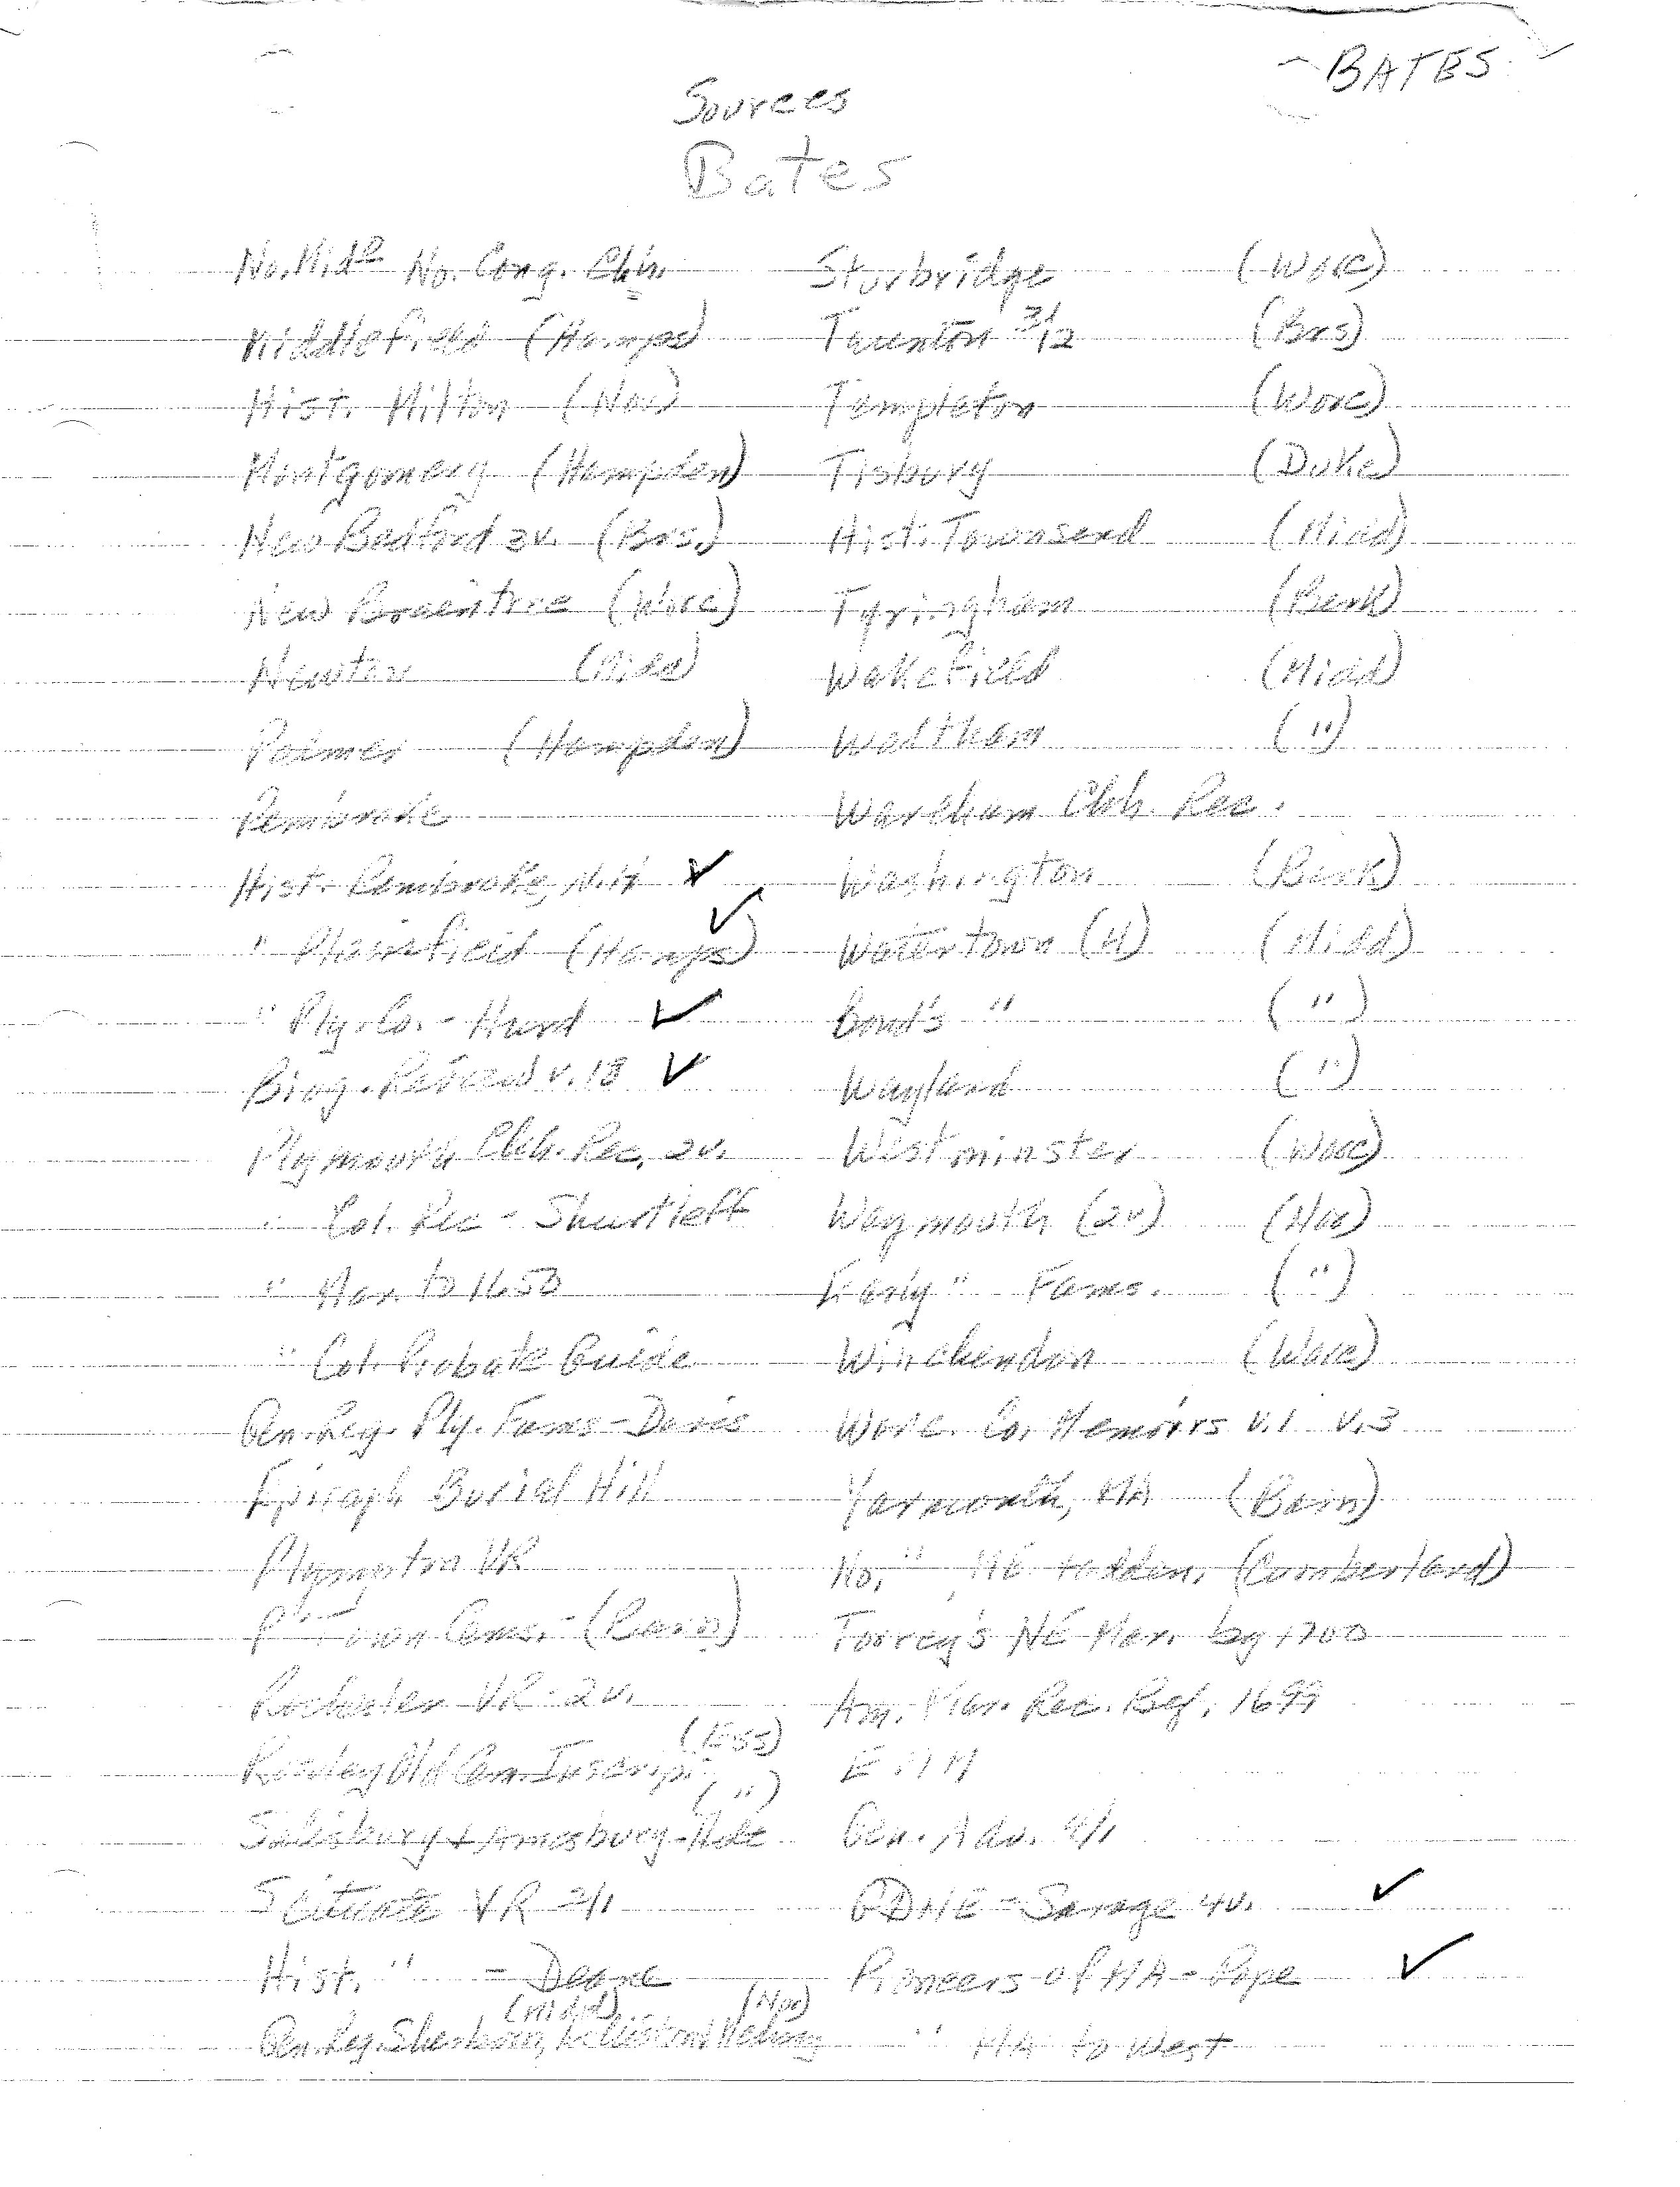 BATES
Sources
Bates
No. Midd No. Cong. Chh. Sturbridge (Worc)
Middlefield (Hamps) Taunton 3/2 (Brs)
Hist. Milton (Nor) Templeton (Worc)
Montgomery (Hampden) Tisbury (Duke)
New Bedford 3v. (Brs.) Hist. Townsend (Midd)
New Braintree (Worc) Tyringham (Berk)
Newton (Midd) Wakefield (Midd)
Palmer (Hampden) Waltham (")
Pembroke Wareham Chh. Rec.
Hist. Pembroke, N.H ✓ Washington (Berk)
" Plainfield (Hamps) ✓ Watertown (4) (Midd)
" Ply. Co. - Hurd ✓ Bond's " (")
Biog. Review v. 18 ✓ Wayland (")
Plymouth Chh. Rec. 2v. Westminster (Worc)
" Col. Rec - Shurtleff Weymouth (2v) (Nor)
" Mar. to 1650 Early " Fams. (")
" Col. Probate Guide Winchendon (Worc)
Gen. Reg. Ply. Fams - Davis Worc. Co. Memoirs v.1 v.3
Epitaph Burial Hill Yarmouth, MA (Barn)
Plympton VR No. " ME (Cumberland)
P'Town Cems. - (Barn) Torrey's NE Mar. by 1700
Rochester VR - 2v. Am. Mar. Rec. Bef. 1699
Rowley Old Cem. Inscrip. (Ess)
Salisbury + Amesbury - Hoit (") Gen. Adv. 4/1
Scituate VR 2/1 GDNE - Savage 4v. ✓
Hist. " - Deane Pioneers of MA - Pope ✓
Gen. Reg. Sherborn, Holliston (Midd) + Medway (Nor) " MA to West